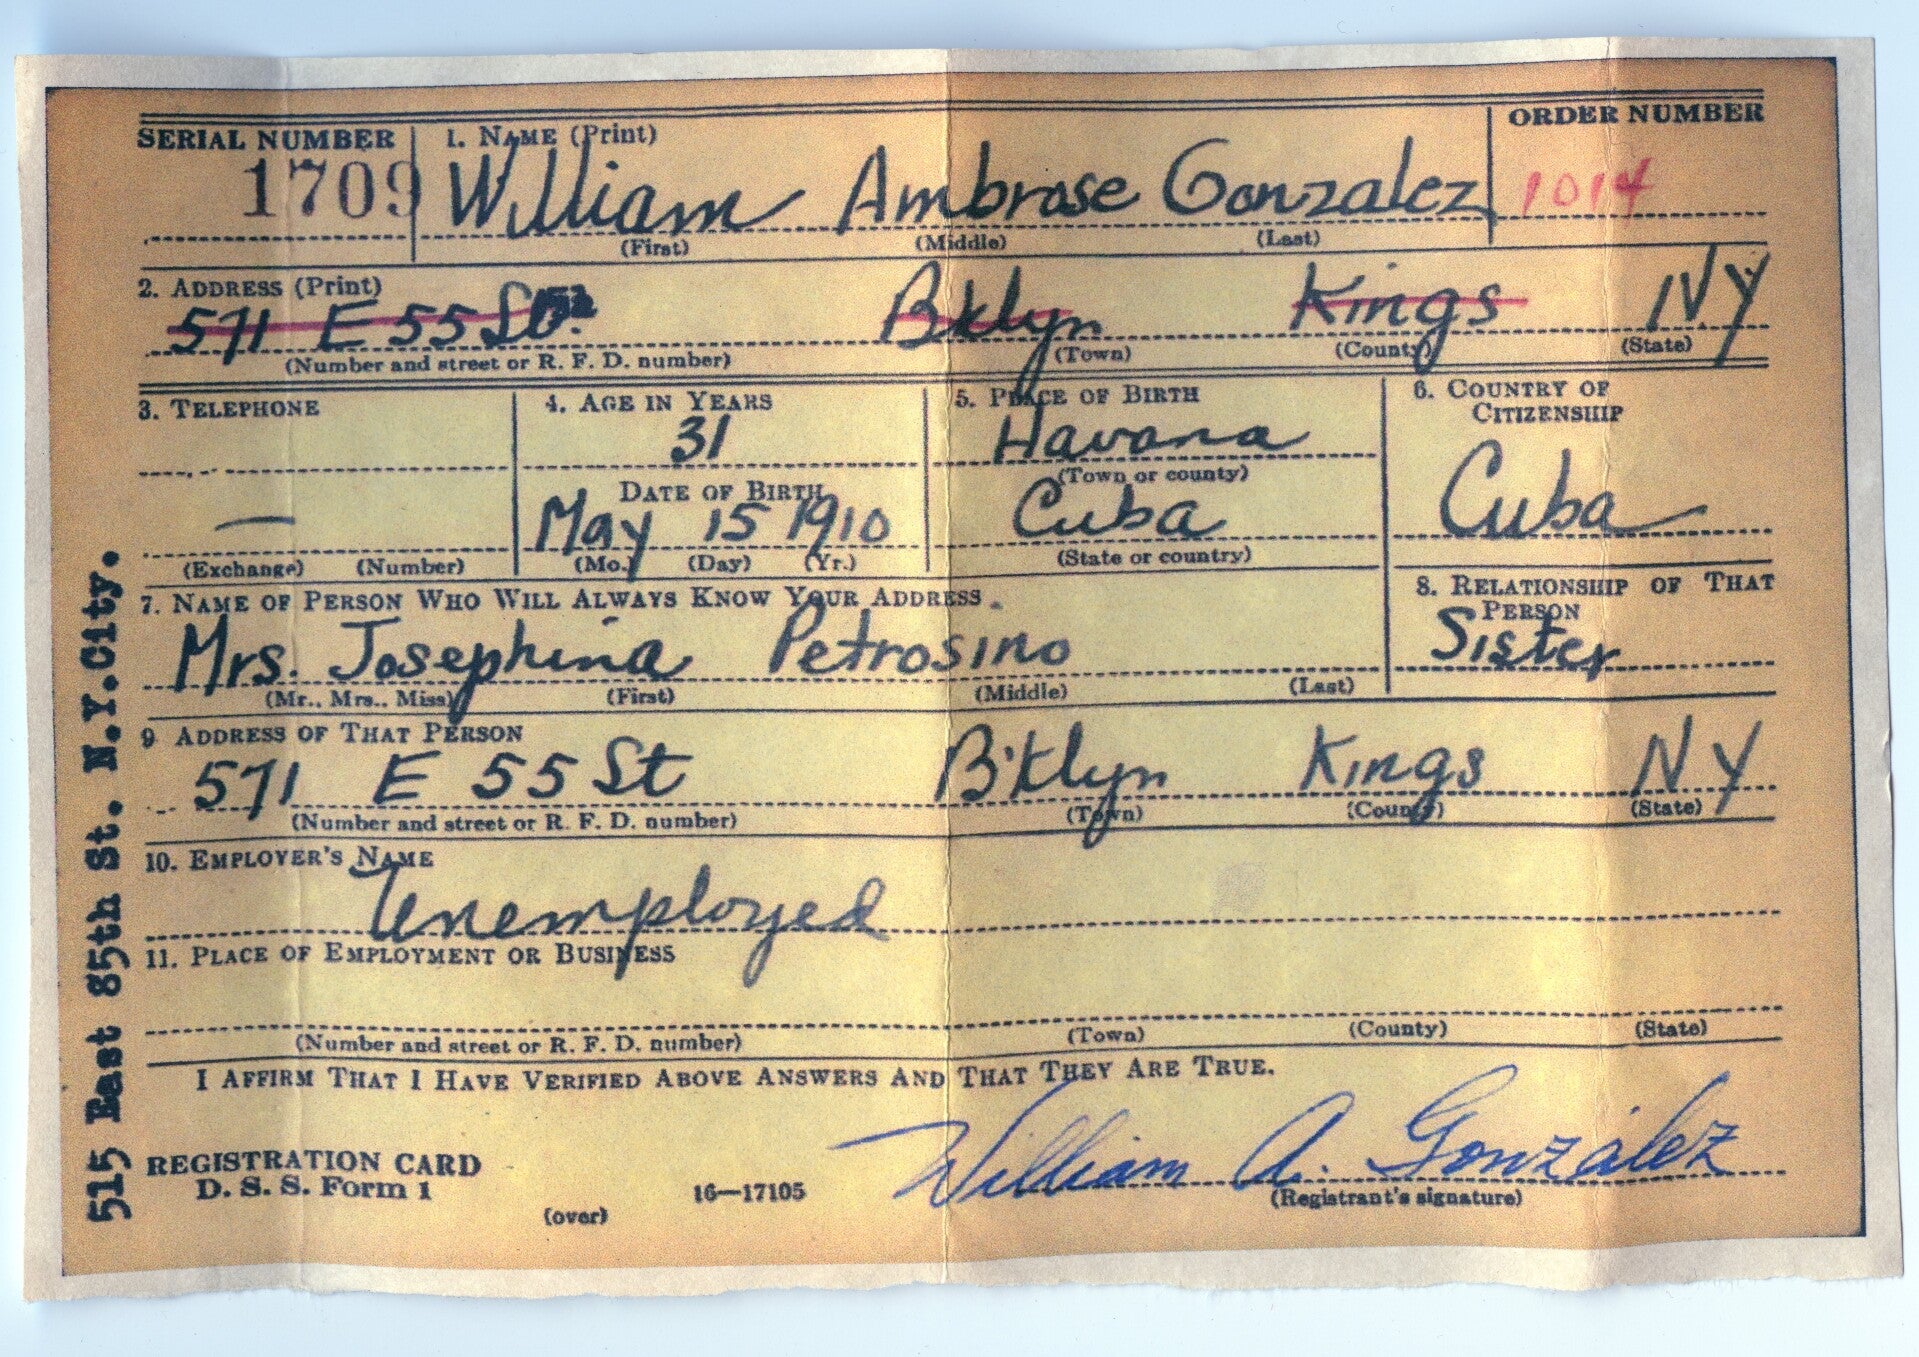 SERIAL NUMBER 1. NAME (Print) ORDER NUMBER
1709 William Ambrose Gonzalez 1014
(First) (Middle) (Last)
2. ADDRESS (Print)
571 E 55 St. Bklyn Kings NY
(Number and street or R. F. D. number) (Town) (County) (State)
3. TELEPHONE 4. AGE IN YEARS 5. PLACE OF BIRTH 6. COUNTRY OF CITIZENSHIP
31 Havana
(Town or county)
DATE OF BIRTH
— May 15 1910 Cuba Cuba
(Exchange) (Number) (Mo.) (Day) (Yr.) (State or country)
7. NAME OF PERSON WHO WILL ALWAYS KNOW YOUR ADDRESS 8. RELATIONSHIP OF THAT PERSON
Mrs. Josephina Petrosino Sister
(Mr., Mrs., Miss) (First) (Middle) (Last)
9 ADDRESS OF THAT PERSON
571 E 55 St B'klyn Kings NY
(Number and street or R. F. D. number) (Town) (County) (State)
10. EMPLOYER'S NAME
Unemployed
11. PLACE OF EMPLOYMENT OR BUSINESS
(Number and street or R. F. D. number) (Town) (County) (State)
I AFFIRM THAT I HAVE VERIFIED ABOVE ANSWERS AND THAT THEY ARE TRUE.
William A. Gonzalez
REGISTRATION CARD
D. S. S. Form 1 16—17105 (Registrant's signature)
(over)
515 East 85th St. N.Y.City.